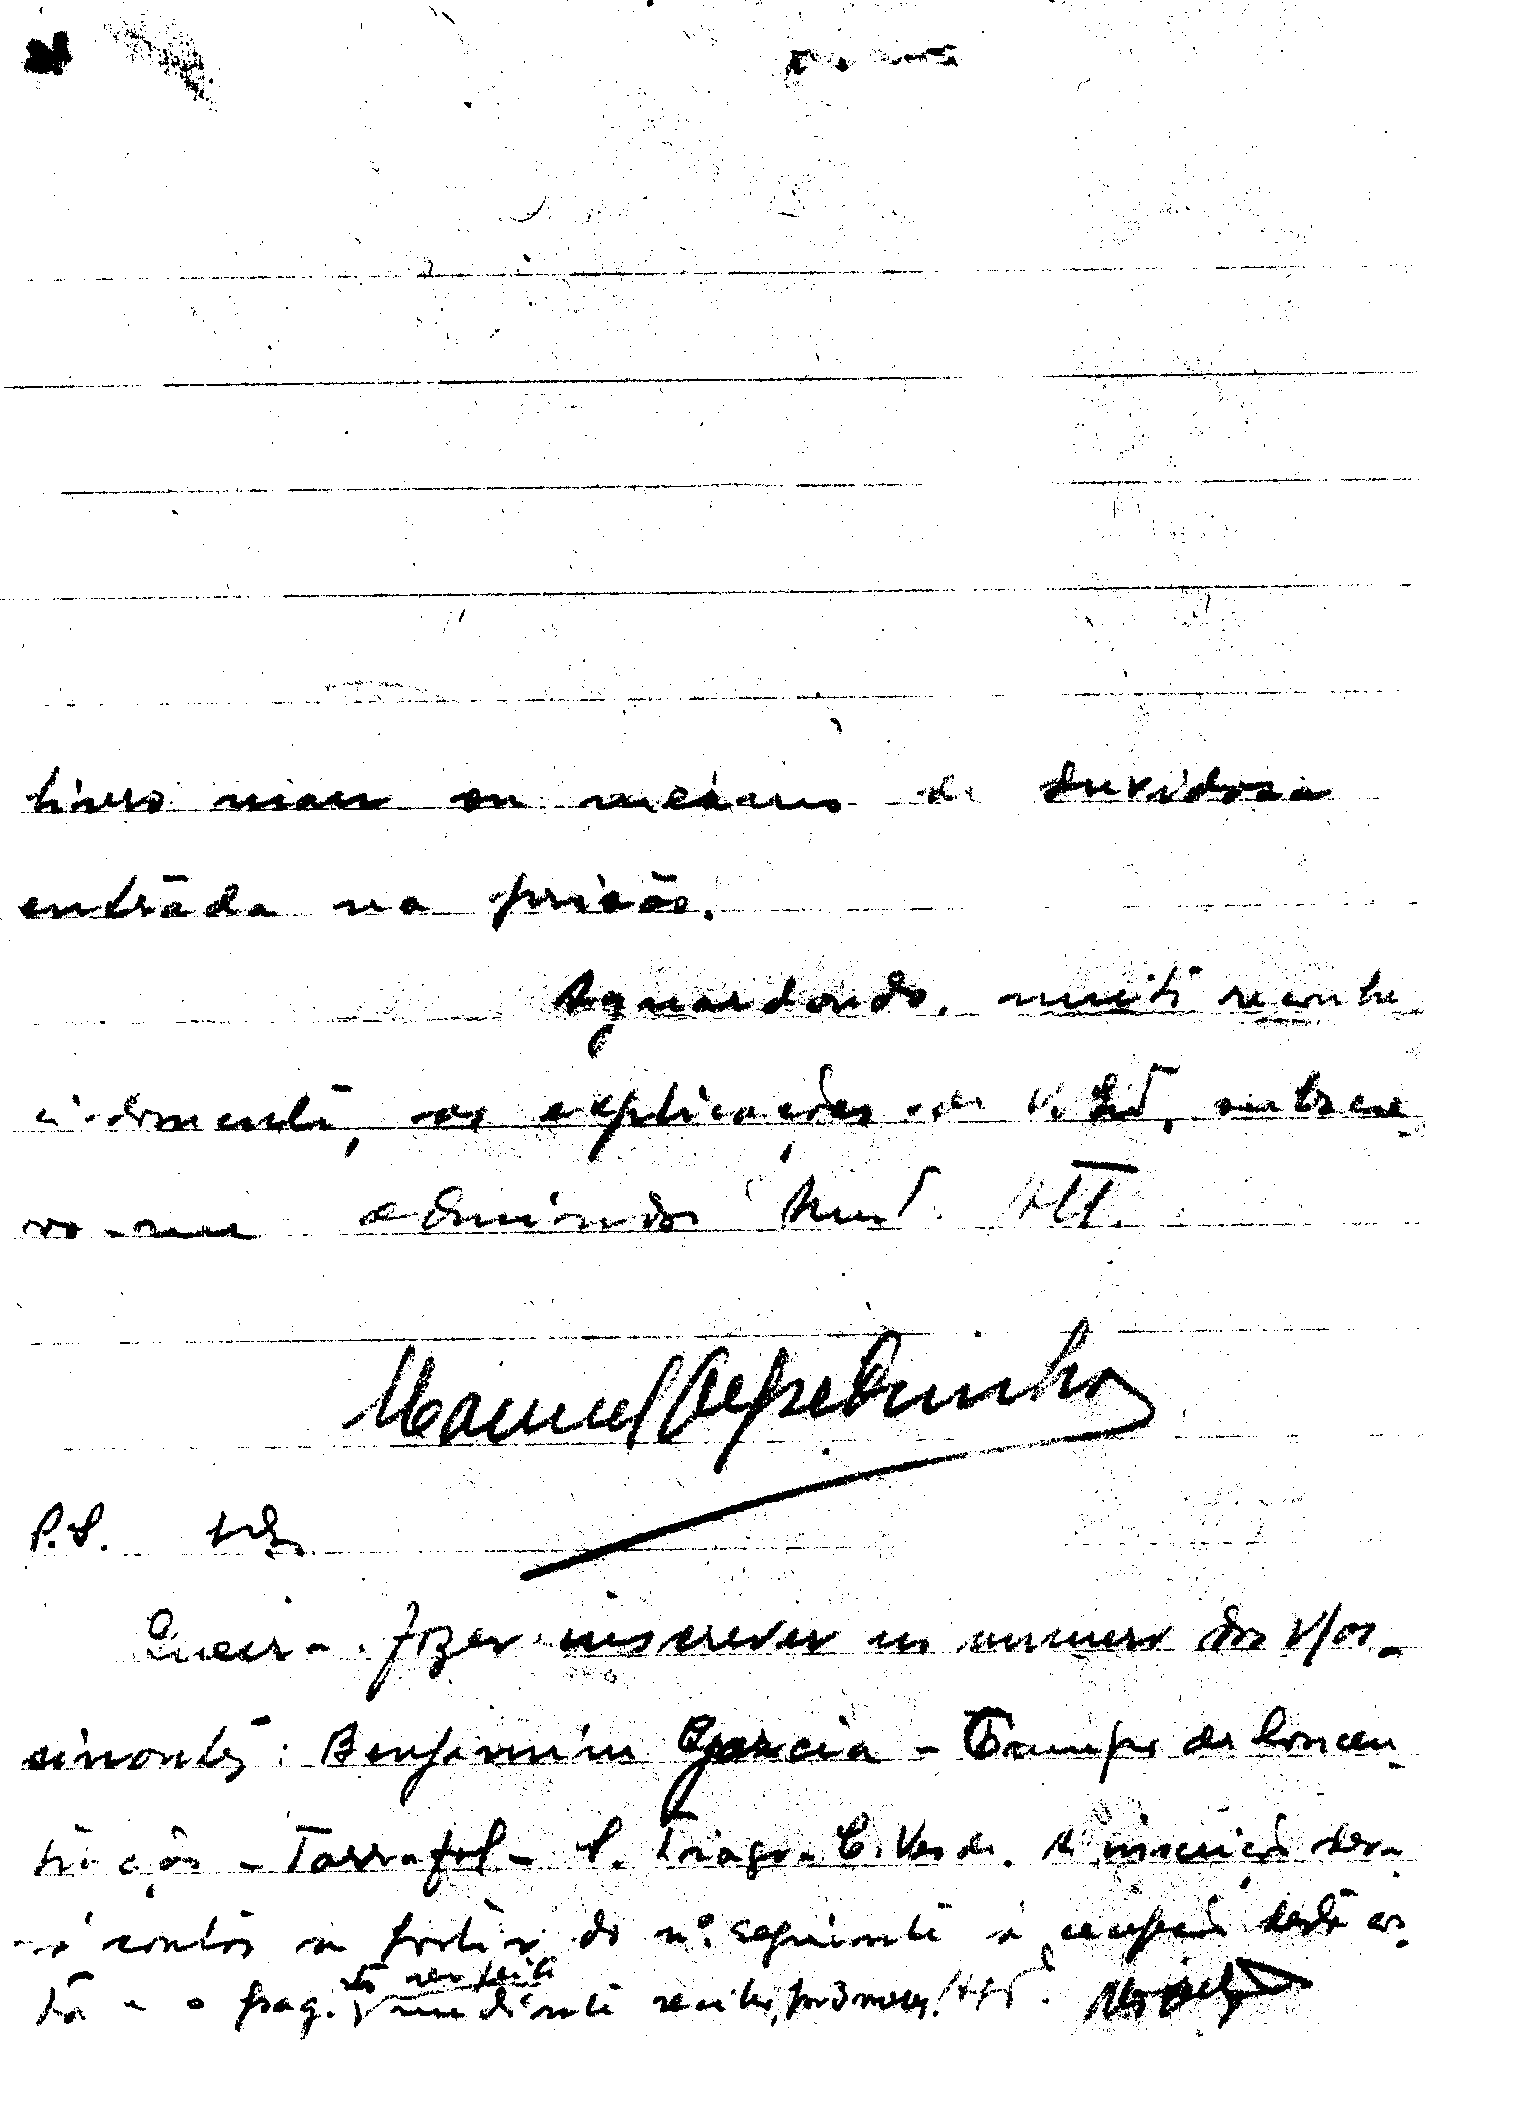 livro mais ou menos de duvidosa
entrāda na prisão.
Aguardando, muito reconhe
cidamente, as explicações de V. Exª, subscre
vo-me admirador
Manuel Alpedrinha
P.S.
Queira fazer inscrever no numero dos V/as-
sinantes: Benjamim Garcia - Campo de Concen-
tração - Tarrafal - S. Tiago - C. Verde. A inscrição será
contos a partir do nº seguinte á recepção desta car-
ta - o pag. mediante por 3 meses.